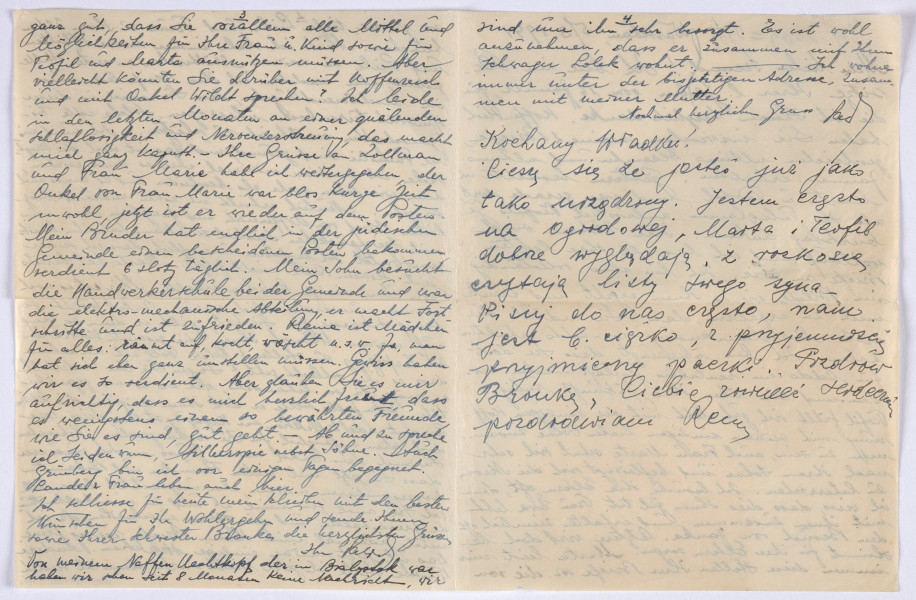 3
ganz gut, dass Sie vor allem alle Mittel und
Möglichkeiten für Ihre Frau u. Kind sowie für
Teofil und Marta ausnützen müssen. Aber
vielleicht könnten Sie darüber mit
und mit Onkel Wildt sprechen? Ich leide
in den letzten Monaten an einer quälenden
Schlaflosigkeit und Nervenzerstreuung, das macht
mich ganz kaputt. – Ihre Grüsse an Zollman
und Frau Marie habe ich weitergegeben, der
Onkel von Frau Marie war blos kurze Zeit
unwohl, jetzt ist er wieder auf dem Posten.
Mein Bruder hat endlich in der jüdischen
Gemeinde einen bescheidenen Posten bekommen
verdient 6 sloty täglich. Mein Sohn besucht
die Handwerkerschule bei der Gemeinde und zwar
die elektro-mechanische Abteilung, er macht Fort
schritte und ist zufrieden. Renia ist Mädchen
für alles: räumt auf, kocht, wäscht u.s.w. Ja, man
hat sich eben ganz umstellen müssen. Gewiss haben
wir es so verdient. Aber glauben Sie es mir
aufrichtig, dass es mich herzlich freut dass
es wenigstens einem so bewährten Freunde
wie Sie es sind, gut geht – Ab und zu spreche
ich Seidenwurm, nebst Söhne.
Grünberg bin ich vor einigen Tagen begegnet.
Frau leben auch hier.
Ich schliesse für heute mein Schreiben mit den besten
Wünschen für Ihr Wohlergehen und sende Ihnen
sowie Ihrer Bronka die herzlichsten Grüsse
Ihr
Von meinem Neffen Hechtkopf der in Bialystok war
haben wir schon seit 8 Monaten keine Nachricht, wir
4
sind um ihn sehr besorgt. Es ist wohl
anzunehmen, dass er zusammen mit Ihrem
Schwager Lolek wohnt. Ich wohne
immer unter der bisherigen Adresse, zusam-
men mit meiner Mutter.
Nochmal herzlichen Gruss
Kochany Władku!
Cieszę się że jesteś już jako
tako urządzony. Jestem często
na Ogrodowej, Marta i Teofil
dobrze wyglądają, z rozkoszą
czytają listy swego syna.
Pisuj do nas często, nam
jest b. ciężko, z przyjemnością
przyjmiemy paczki. Pozdrów
Bronkę, Ciebie również serdecznie
pozdrawiam Reny